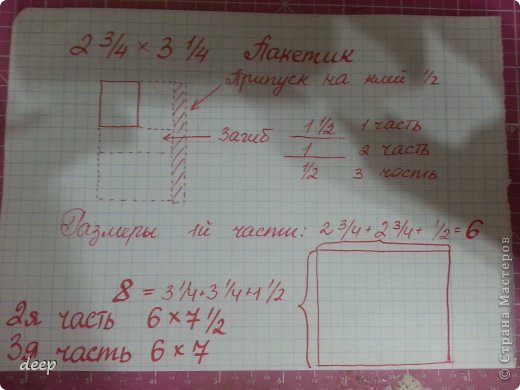 2 3/4 × 3 1/4 Пакетик
Припуск на клей 1/2
Загиб
1 1/2 1 часть
1 2 часть
1/2 3 часть
Размеры 1й части: 2 3/4 + 2 3/4 + 1/2 = 6
8 = 3 1/4 + 3 1/4 + 1 1/2
2я часть 6 × 7 1/2
3я часть 6 × 7
deep
© Страна Мастеров